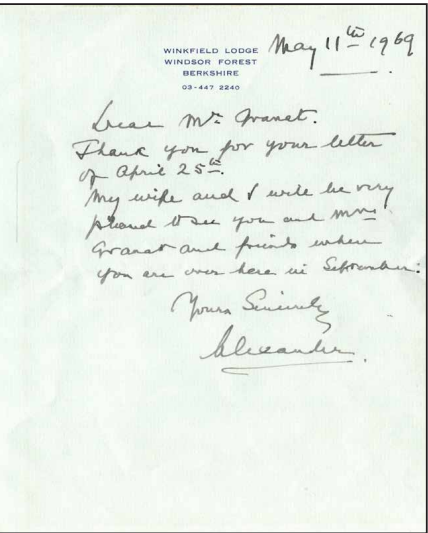 WINKFIELD LODGE
WINDSOR FOREST
BERKSHIRE
03-447 2240
May 11th 1969
Dear Mr. Granat.
Thank you for your letter
of April 25th.
My wife and I will be very
pleased to see you and Mrs
Granat and friends when
you are over here in September.
Yours Sincerely
Alexander.